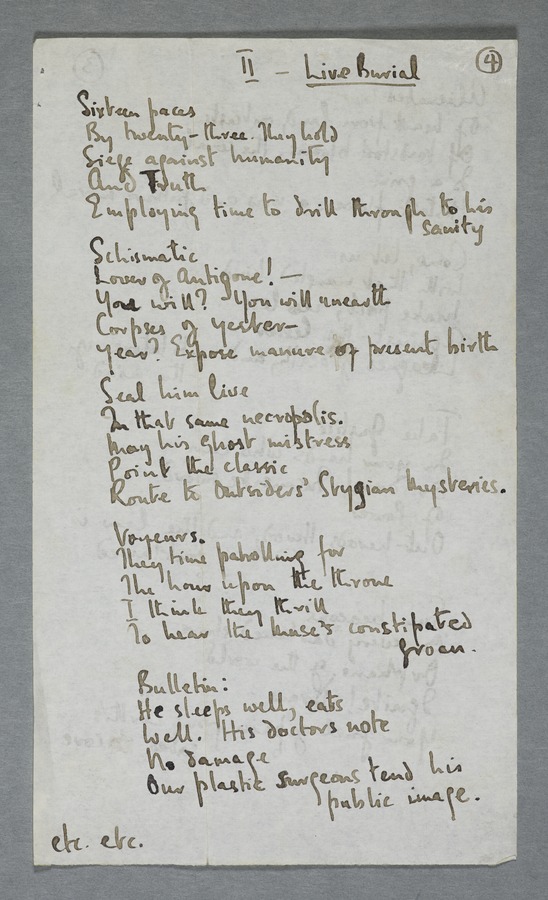 II - Live Burial
4
Sixteen paces
By twenty-three. They hold
Siege against humanity
And Truth
Employing time to drill through to his
sanity
Schismatic
Lover of Antigone! -
You will? You will unearth
Corpses of yester-
year? Expose manure of present birth
Seal him live
In that same necropolis.
May his ghost mistress
Point the classic
Route to Outsiders' Stygian Mysteries.
Voyeurs.
They time patrolling for
The hour upon the throne
I think they thrill
To hear the Muse's constipated
groan.
Bulletin:
He sleeps well, eats
Well. His doctors note
No damage
Our plastic surgeons tend his
public image.
etc. etc.